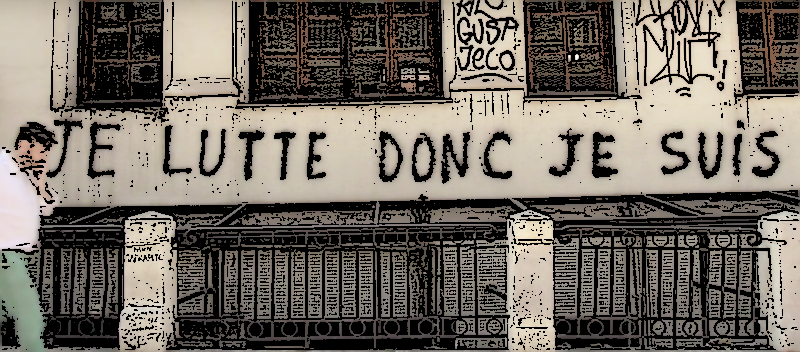 GUSP
JECO
JE LUTTE DONC JE SUiS